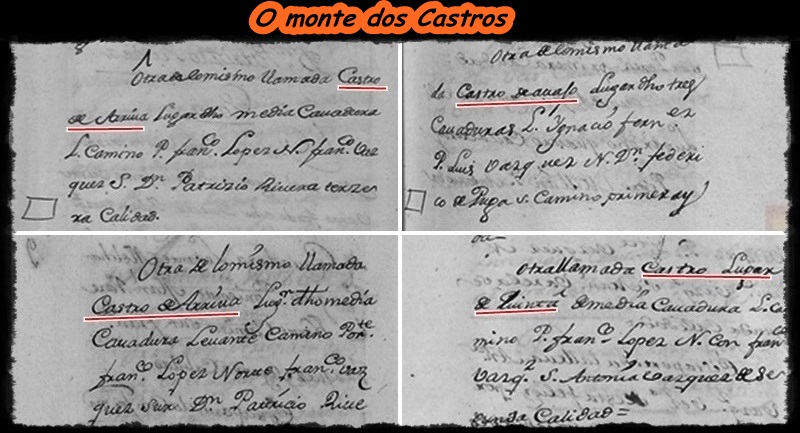 O monte dos Castros
Otra de lo mismo llamada Castro
de Arriva Lugar dho media Cavadura
L. Camino P. franco. Lopez N. franco. Vaz
quez S. Dn Patrizio Rivera terze
ra Calidad.
Otra de lo mismo llama
da Castro de avajo Lugar dho tres
Cavaduras L. Ygnacio fernez
P. Luis Vazquez N. Dn. federi
co de Puga S. Camino primera y
Otra de lo mismo llamada
Castro de Arriva Lugr. dho media
Cavadura Levante Camino Porte.
franco. Lopez Norte franco. Vaz
quez Sur Dn Patricio Rive
Otra llamada Castro Lugar
de Quinta de media Cavadura L. Ca
mino P. franco Lopez N. Con fran
Vazqz S. Antonia Vazquez de Se
gunda Calidad=